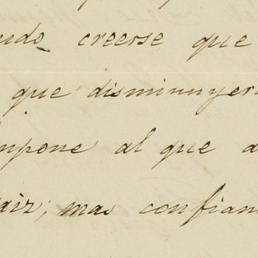 udo creerse que
que disminuyer
mpone al que a
aiz; mas confian